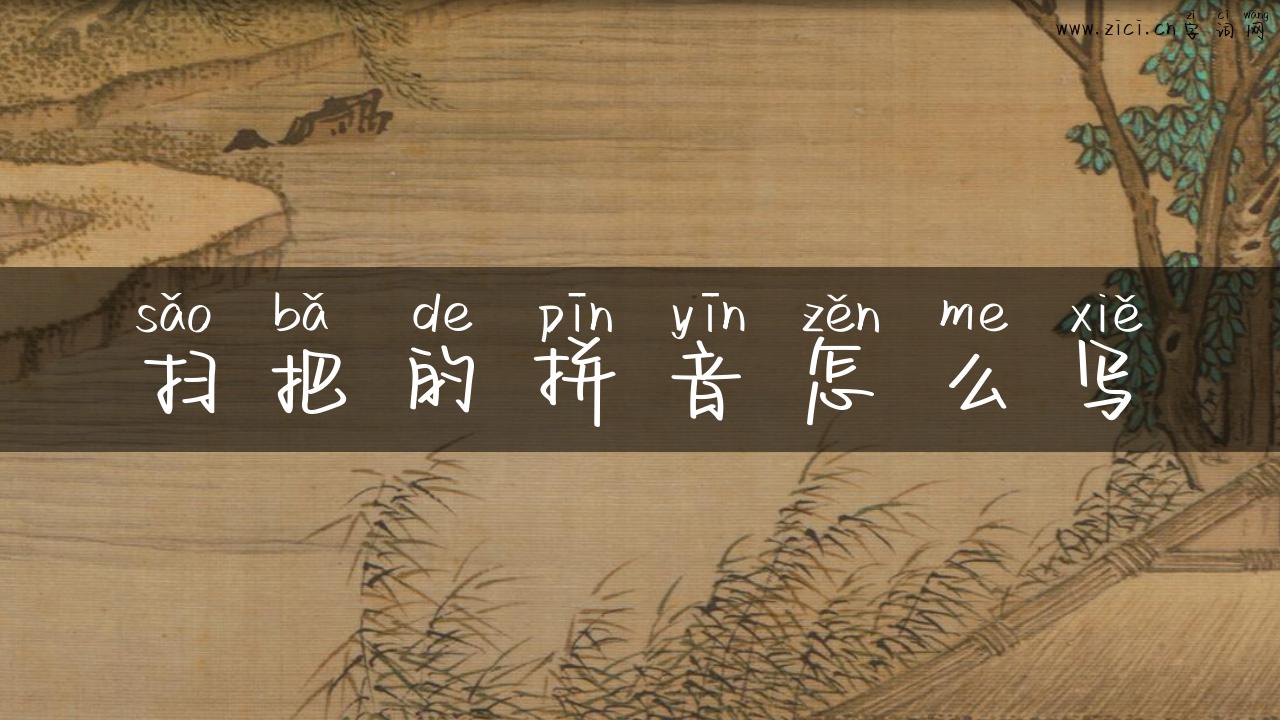 zì cí wǎng
www.zici.cn字词网
sǎo bǎ de pīn yīn zěn me xiě
扫把的拼音怎么写